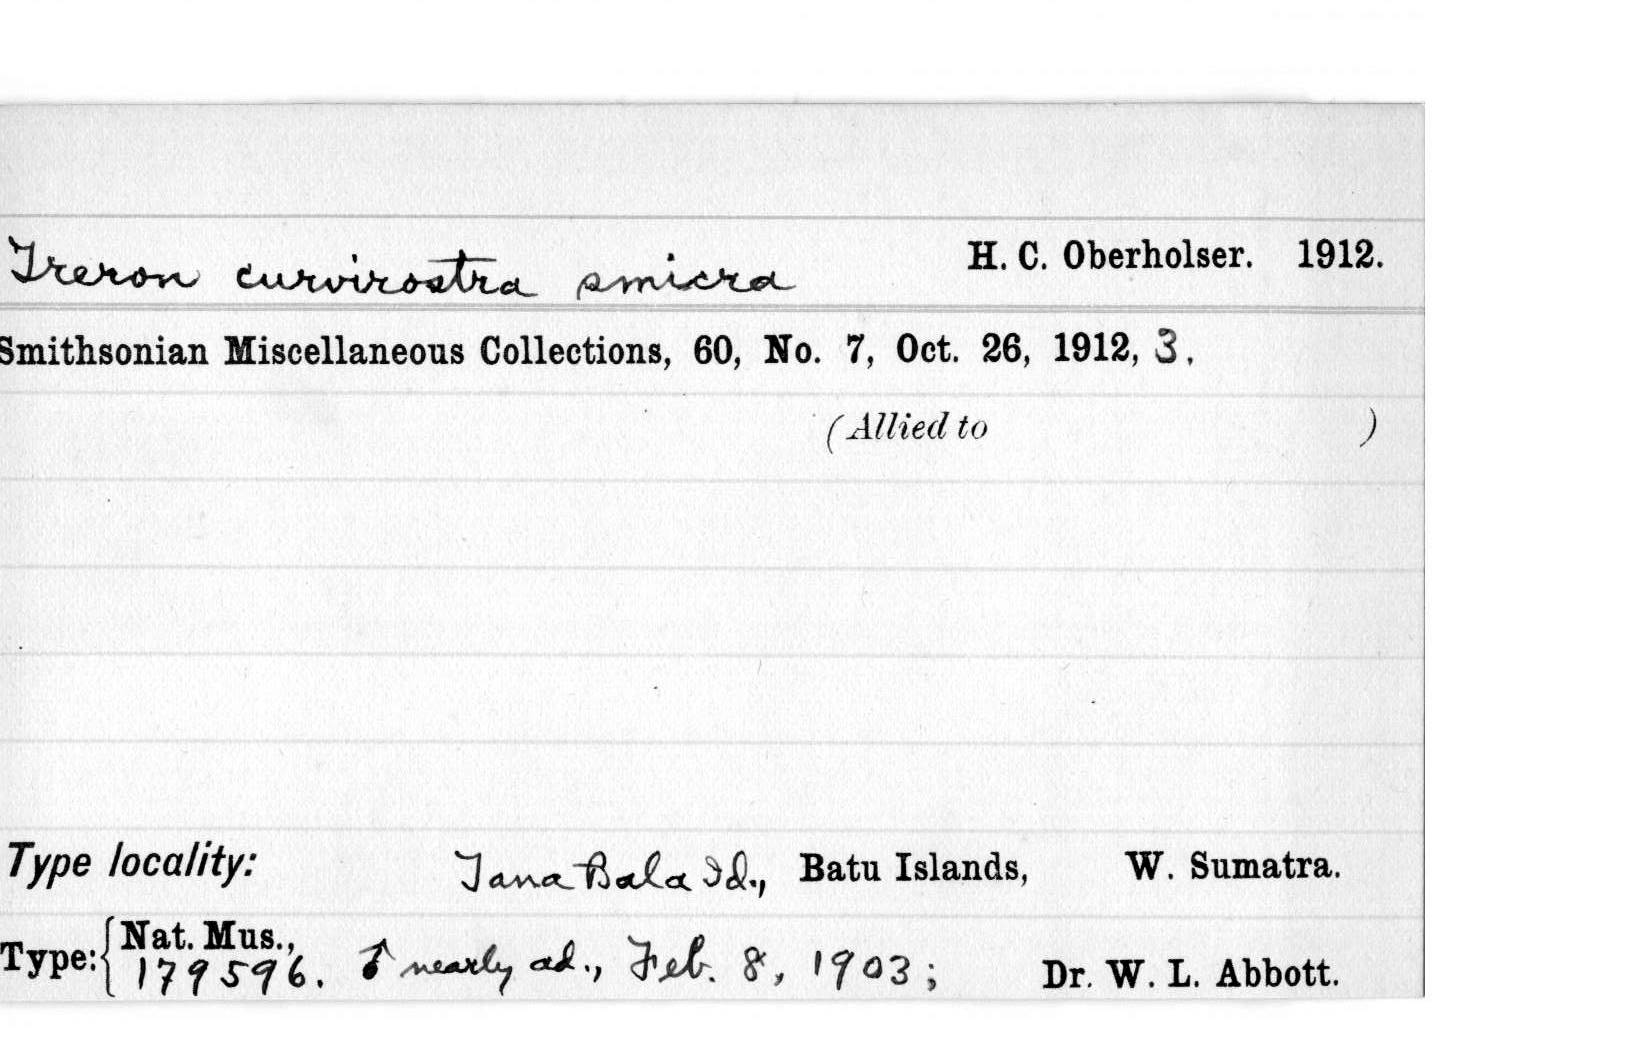 Treron curvirostra smicra H. C. Oberholser. 1912.
Smithsonian Miscellaneous Collections, 60, No. 7, Oct. 26, 1912, 3.
(Allied to )
Type locality: Tana Bala Id., Batu Islands, W. Sumatra.
Type: { Nat. Mus.,
179596. ♂ nearly ad., Feb. 8, 1903; Dr. W. L. Abbott.